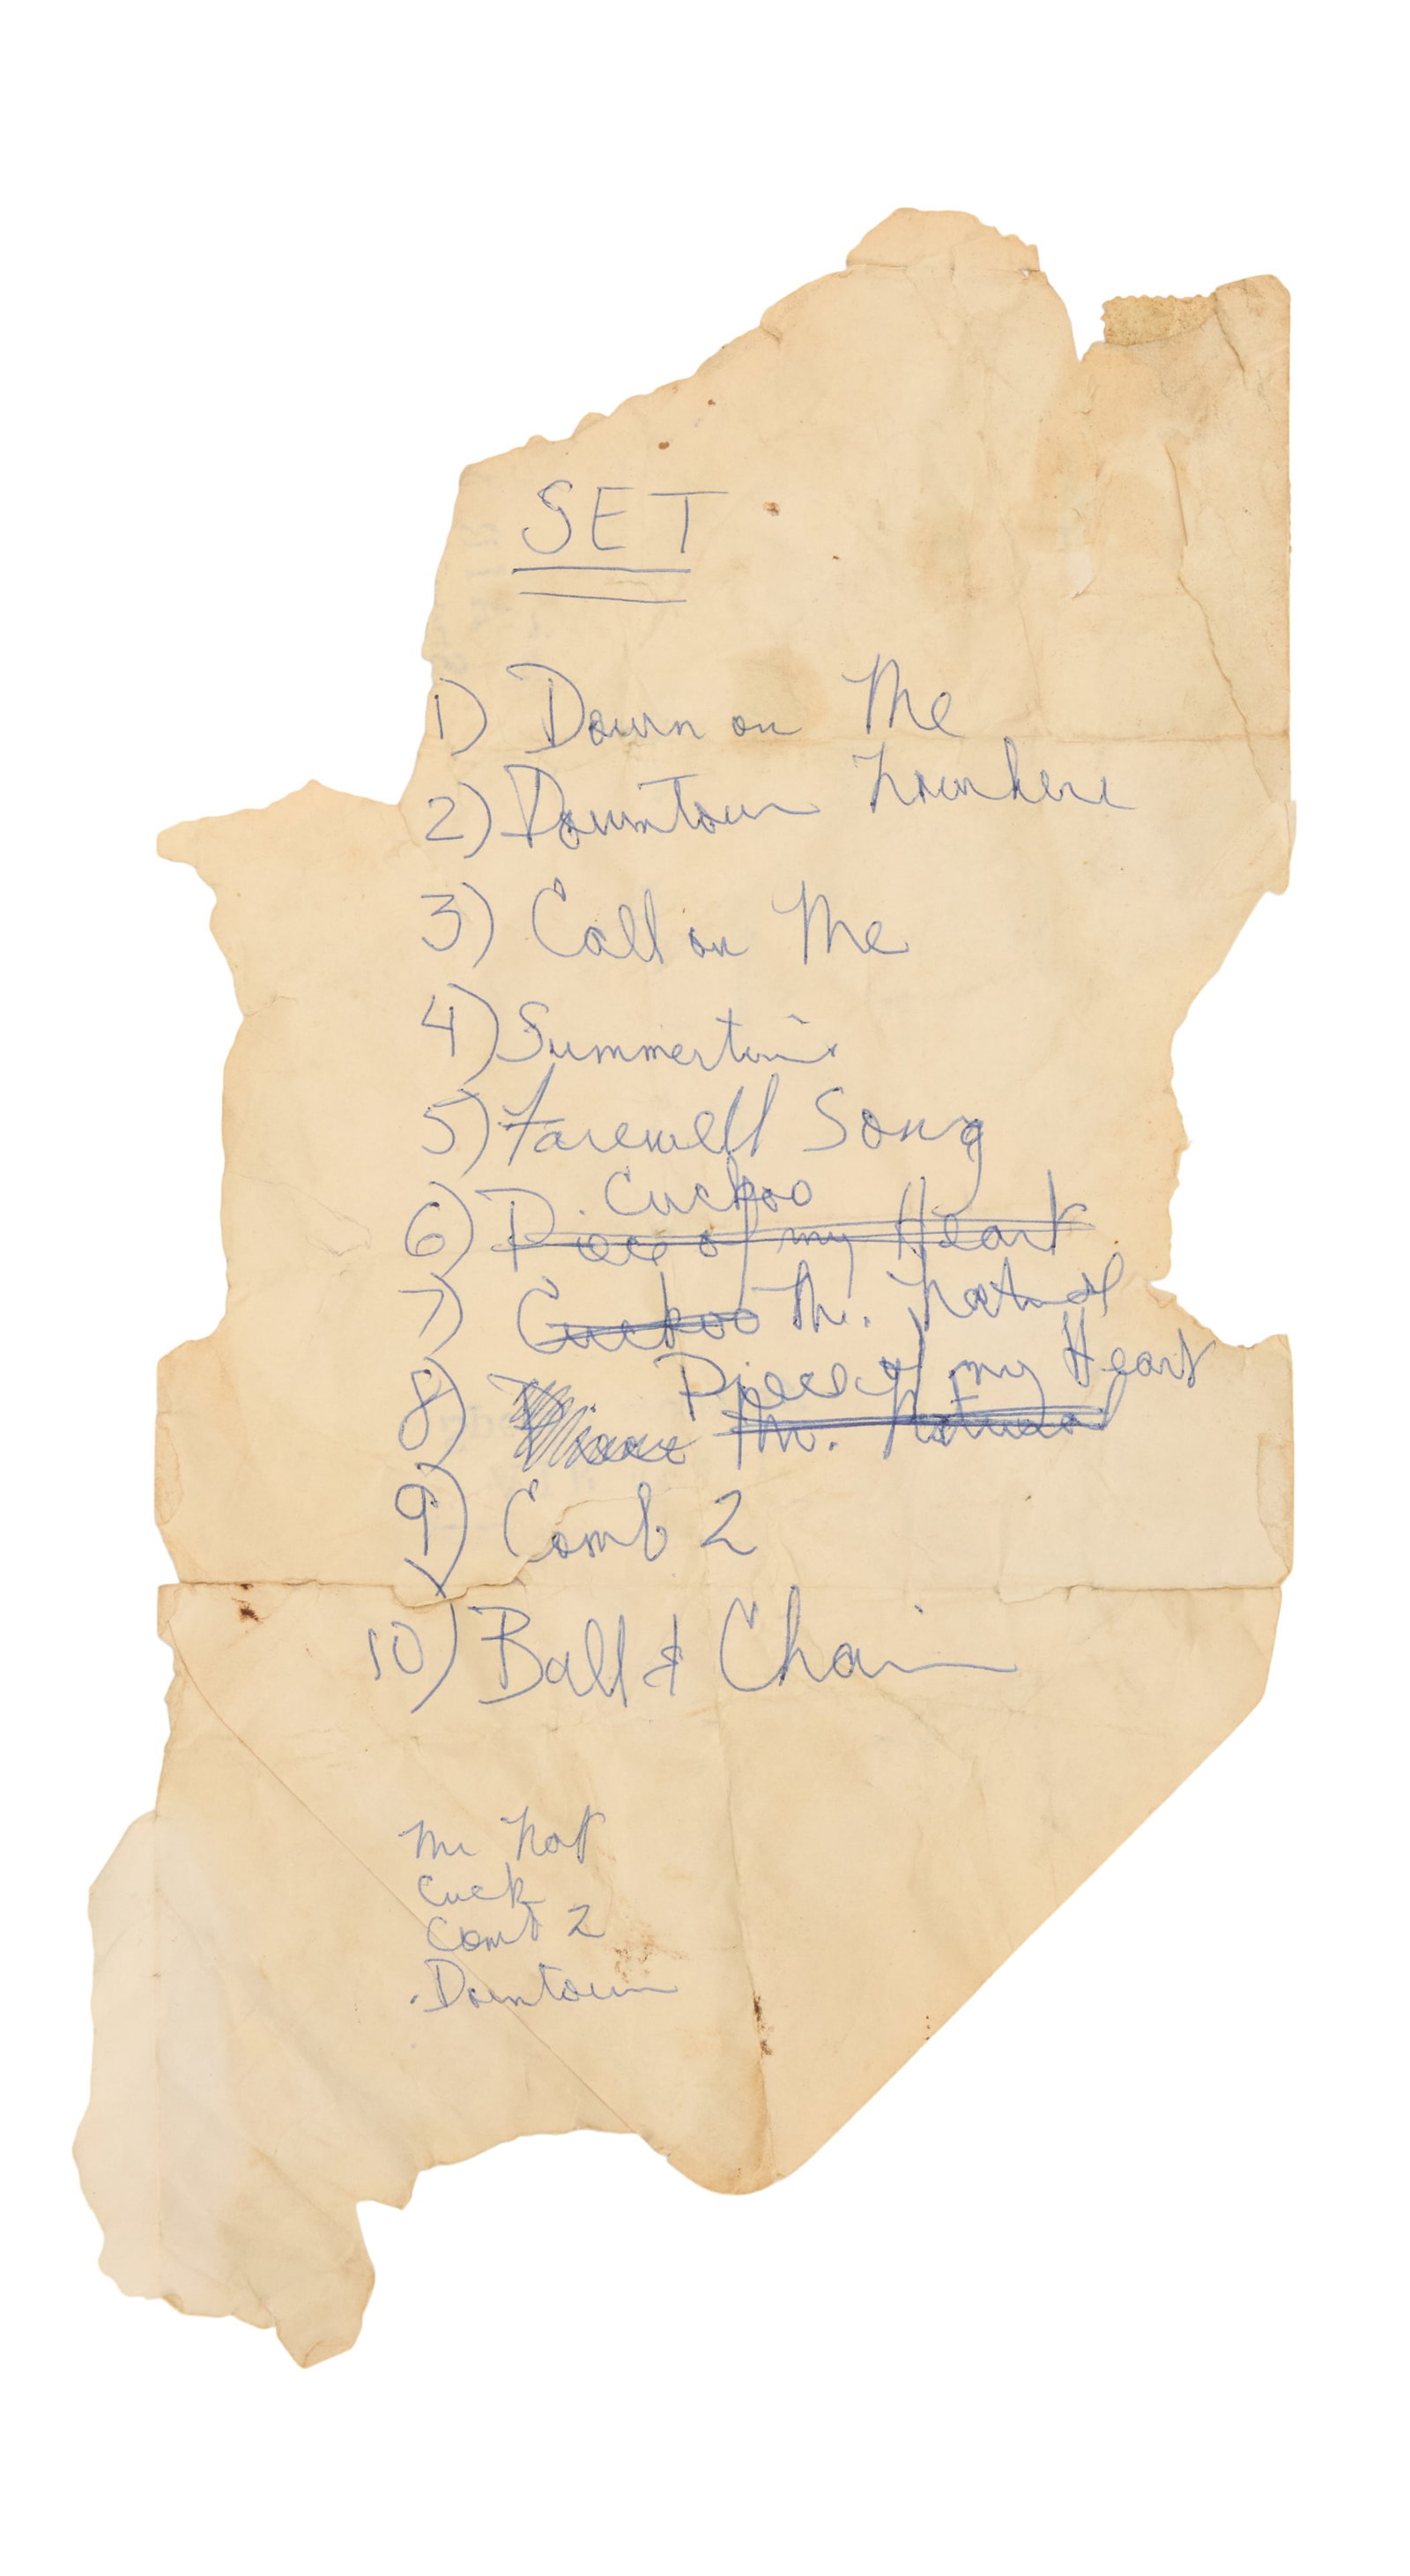 SET
1) Down on Me
2) Downtown Nowhere
3) Call on Me
4) Summertime
5) Farewell Song
Cuckoo
6) Piece of my Heart
7) Cuckoo Mr. Natural
Piece of my Heart
8) Mr. Natural
9) Comb 2
10) Ball & Chain
Mr Nat
Cuck
Comb 2
Downtown